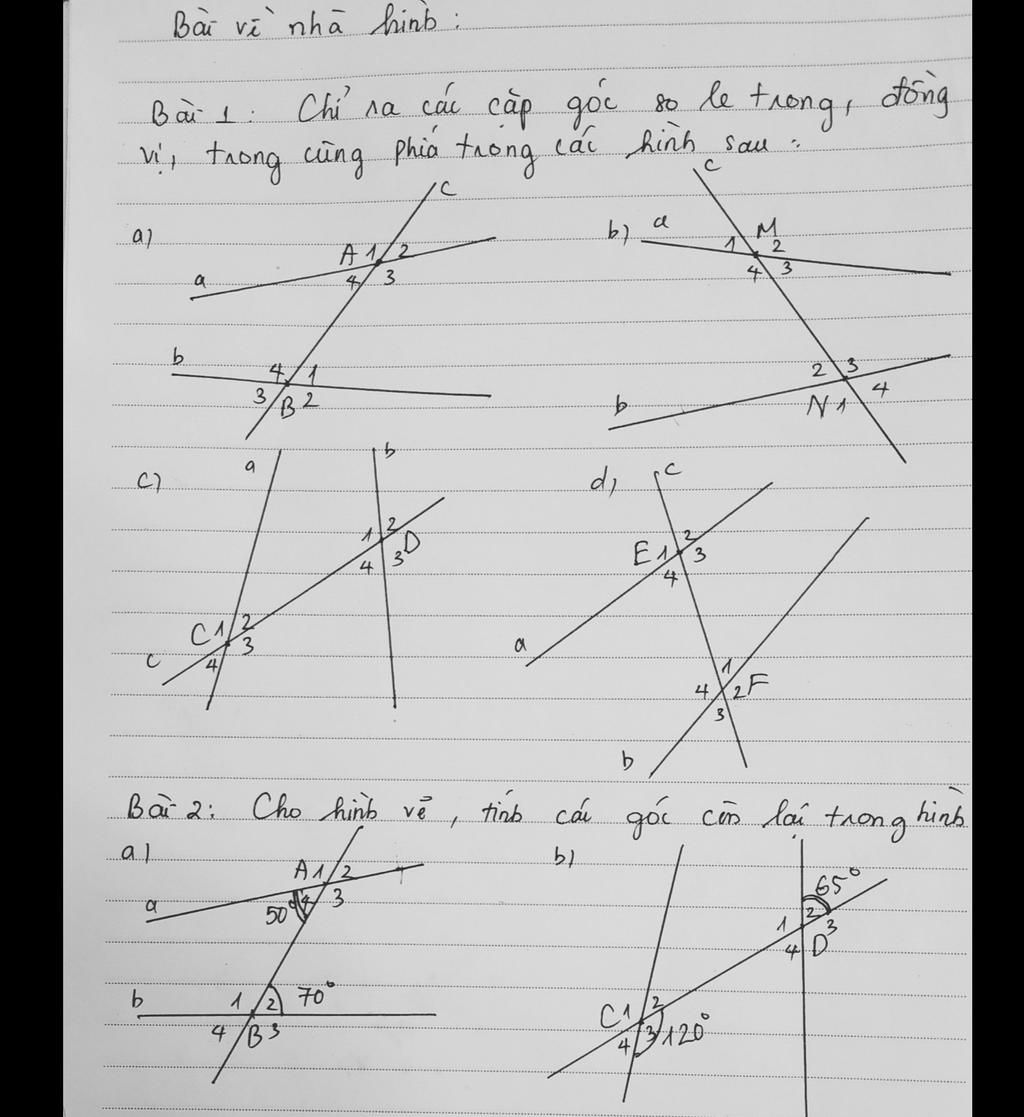 Bài về nhà hình:
Bài 1: Chỉ ra các cặp góc so le trong, đồng
vị, trong cùng phía trong các hình sau:
a) c b) a c
A 1 2 M 1 2
a 4 3 4 3
b 4 1 2 3
3 B 2 b N 1 4
c) a b d) c
1 2 D E 1 2 3
4 3 4
C 1 2 a
c 4 3 1
4 2 F
3
b
Bài 2: Cho hình vẽ, tính các góc còn lại trong hình
a) b)
A 1 2 65°
a 50° 4 3 1 2 3
4 D
b 1 2 70° C 1 2
4 B 3 4 3 120°